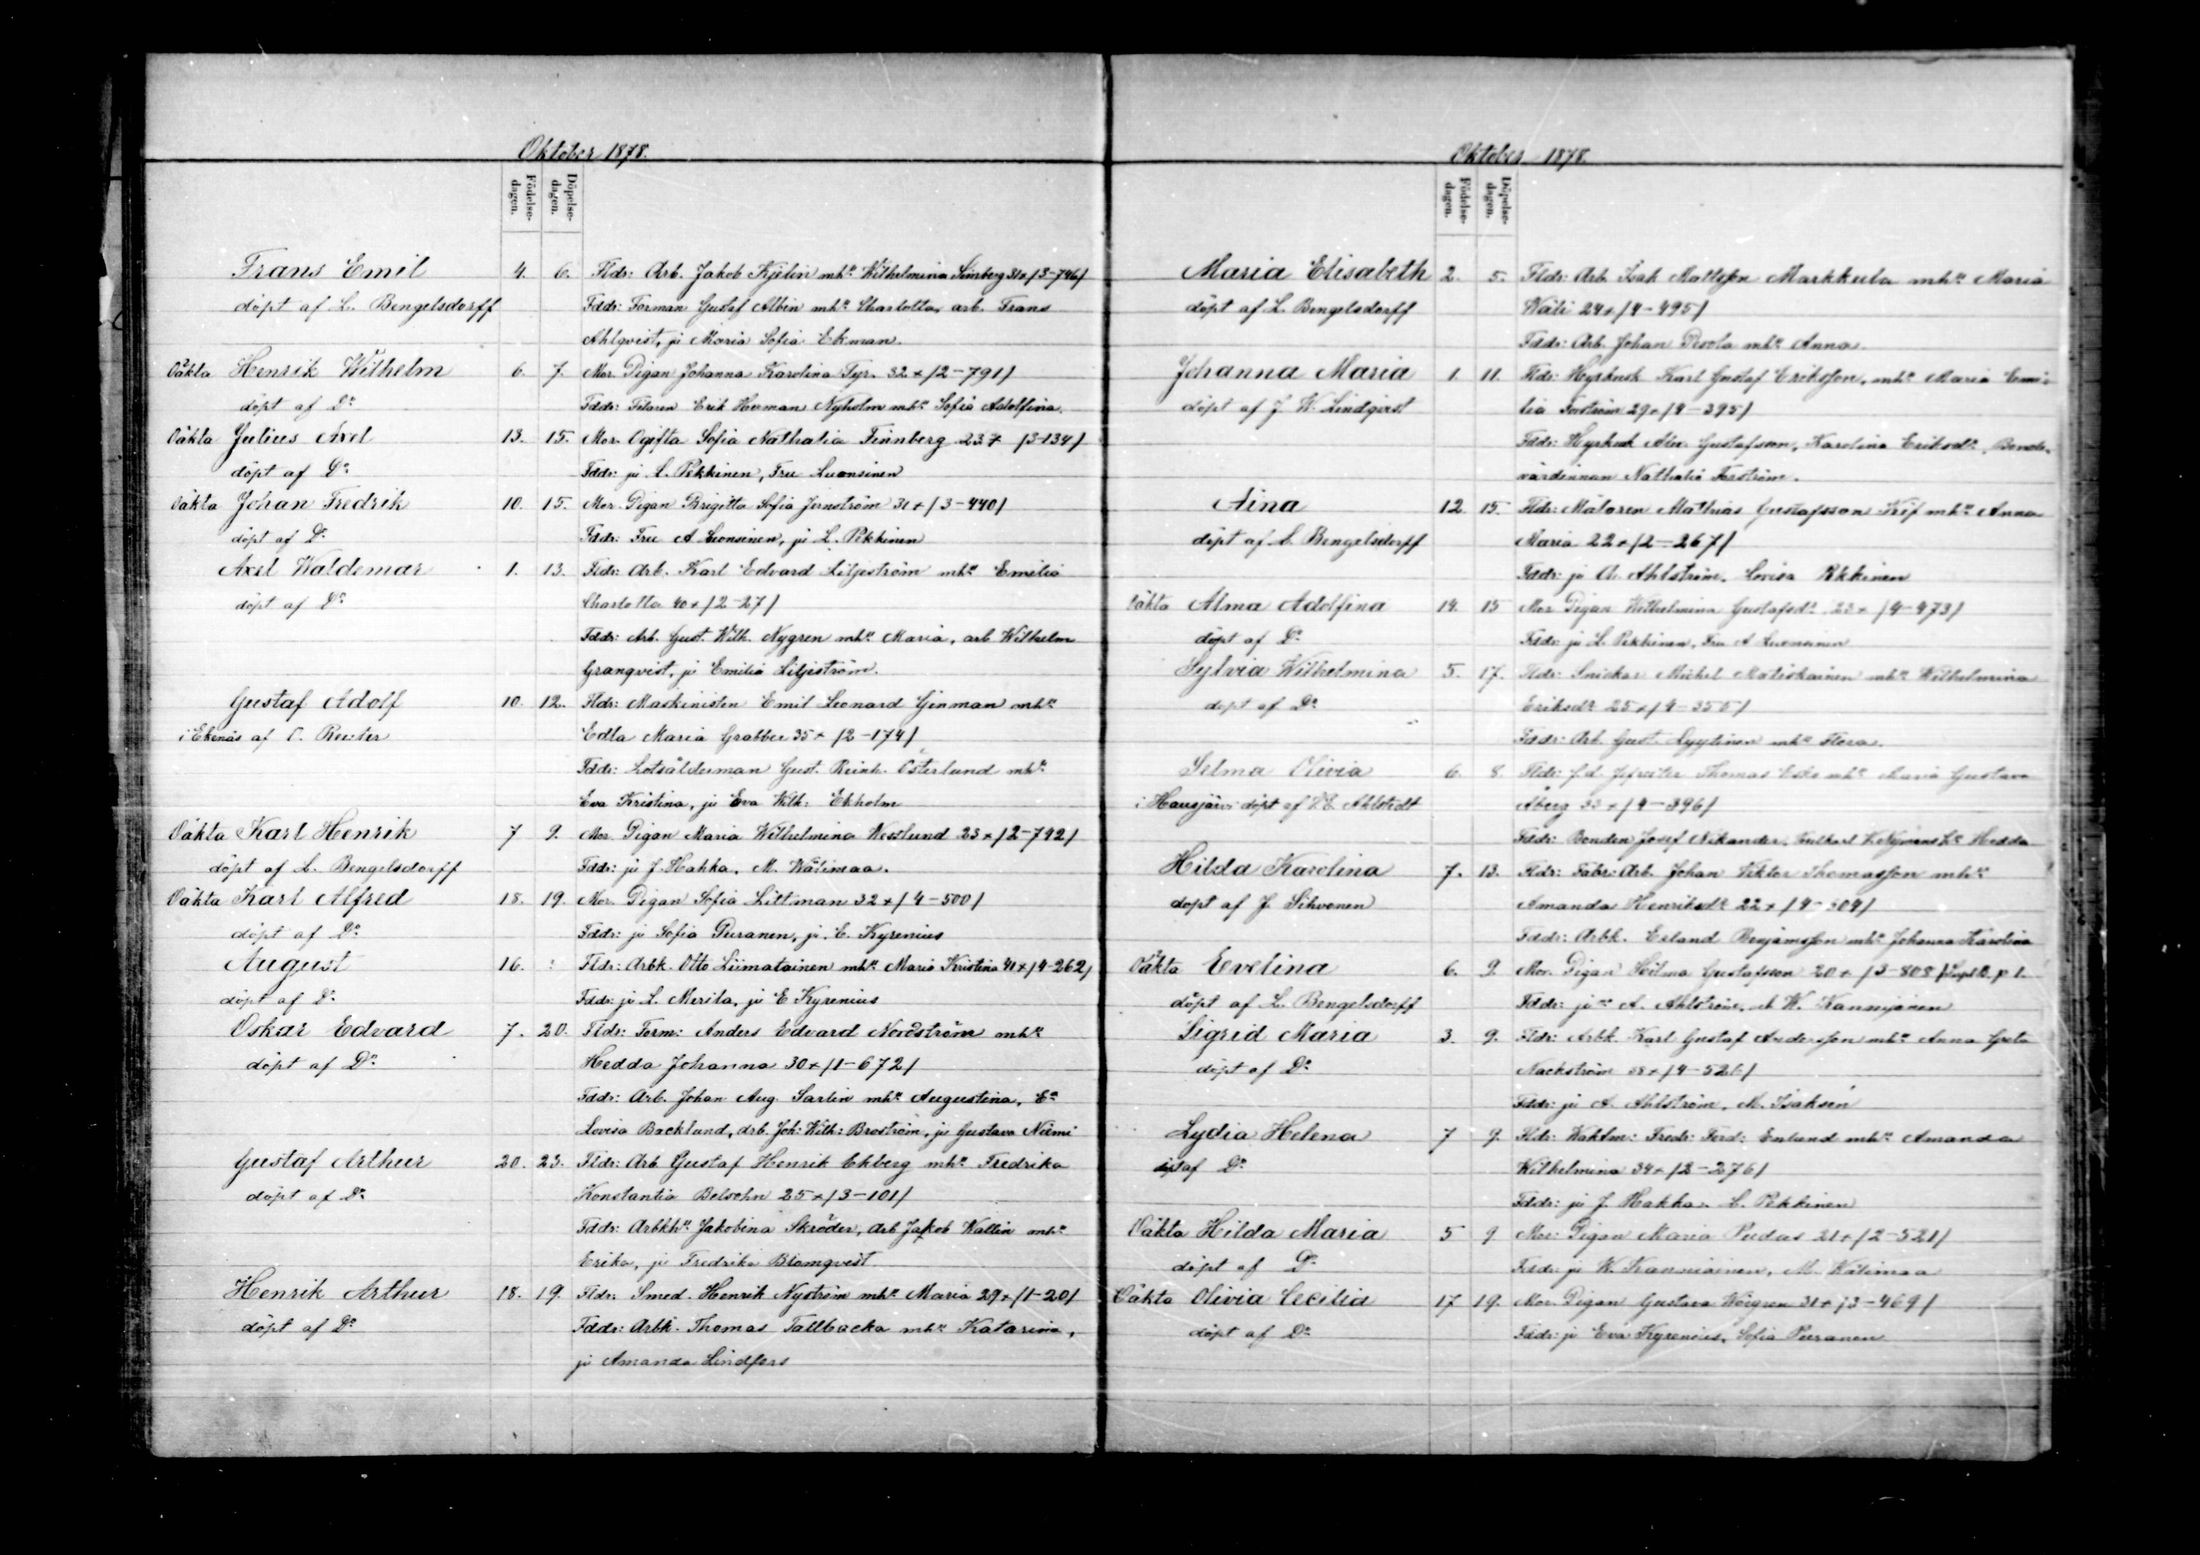 Oktober 1878.
Födelse-dagen. Döpelse-dagen.
Frans Emil 4. 6. Fldr: Arb. Jakob Kjelin mhu Wilhelmina 31 + /3-746/
döpt af L. Bengelsdorff Fddr: Forman Gustaf Albin mhu Charlotta, arb. Frans
Ahlqvist, ju Maria Sofia Ekman.
Oäkta Henrik Wilhelm 6. 7. Mor. Pigan Johanna Karolina Tyr. 32 + /2-791/
döpt af Do Fddr: Filaren Erik Herman Nyholm mhu Sofia Adolfina.
Oäkta Julius Axel 13. 15. Mor. Ogifta Sofia Nathalia Finnberg 23 + /3-134/
döpt af Do Fddr: ju L. Pekkinen, Fru Luonsinen
Oäkta Johan Fredrik 10. 15. Mor. Pigan Brigitta Sofia Jernström 31 + /3-440/
döpt af Do Fddr: Fru A Luonsinen, ju L. Pekkinen
Axel Waldemar 1. 13. Fldr: Arb. Karl Edvard Liljeström mhu Emelia
döpt af Do Charlotta 40 + /2-27/
Fddr: Arb. Gust. Wilh. Nygren mhu Maria, arb Wilhelm
Granqvist, ju Emilia Liljeström.
Gustaf Adolf 10. 12. Fldr: Maskinisten Emil Leonard Ginman mhu
i Ekenäs af Reuter Edla Maria Grabber 35 + /2-174/
Fddr: Lotsålderman Gust. Reinh. Österlund mhu
Eva Kristina, ju Eva Wilh: Ekholm
Oäkta Karl Henrik 7 9. Mor. Pigan Maria Wilhelmina Westlund 23 + /2-742/
döpt af L. Bengelsdorff Fddr: ju J. Hakka, M. Wälimaa.
Oäkta Karl Alfred 18. 19. Mor. Pigan Sofia Littman 32 + /4-500/
döpt af Do Fddr: ju Sofia Puranen, ju E. Kyrenius
August 16. : Fldr: Arbk. Otto Liimatainen mhu Maria Kristina 41 + /4-262/
döpt af Do Fddr: ju L. Merila, ju E Kyrenius
Oskar Edvard 7. 20. Fldr: Form: Anders Edvard Nordström mhu
döpt af Do Hedda Johanna 30 + /1-672/
Fddr: Arb. Johan Aug. Sarlin mhu Augustina, Ea
Lovisa Backlund, drb. Joh: Wilh: Broström, ju Gustava Niemi
Gustaf Arthur 20. 23. Fldr: Arb Gustaf Henrik Ekberg mhu Fredrika
döpt af Do Konstantia Belsohn 25 + /3-101/
Fddr: Arbkhu Jakobina Skröder, Arb Jakob Wallin mhu
Erika, ju Fredrika Blomqvist
Henrik Arthur 18. 19. Fldr: Smed. Henrik Nyström mhu Maria 29 + /1-20/
döpt af Do Fddr: Arbk. Thomas Tallbacka mhu Katarina,
ju Amanda Lindfors
Oktober 1878.
Födelse-dagen. Döpelse-dagen.
Maria Elisabeth 2. 5. Fldr: Arb Isak Mattsson Markkula mhu Maria
döpt af L. Bengelsdorff Wäli 24 + /4-495/
Fddr: Arb. Johan Perola mhu Anna.
Johanna Maria 1. 11. Fldr: Hyrkusk Karl Gustaf Eriksson, mhu Maria Emi-
döpt af J. W. Lindqvist lia Forström 29 + /4-395/
Fddr: Hyrkusk Alex Gustafsson, Karolina Eriksdr, Bonde-
värdinnan Nathalia Forström.
Aina 12. 15. Fldr: Målaren Mathias Gustafsson mhu Anna
döpt af L. Bengelsdorff Maria 22 + /2-267/
Fddr: ju A. Ahlström, Lovisa Pekkinen
Oäkta Alma Adolfina 14. 15 Mor Pigan Wilhelmina Gustafsdr 23 + /4-473/
döpt af Do Fddr: ju L. Pekkinen, Fru A Luonsinen
Sylvia Wilhelmina 5. 17. Fldr: Snickar Michel Matiskainen mhu Wilhelmina
döpt af Do Eriksdr 25 + /4-355/
Fddr: Arb. Gust. Lyytinen mhu Flora.
Selma Olivia 6. 8 Fldr: f.d. Thomas mhu Maria Gustava
i Hausjärvi döpt af Ahlstedt Åberg 33 + /4-396/
Fddr: Bonden Josef Nikander, Hedda
Hilda Karolina 7. 13. Fldr: Fabr: Arb. Johan Viktor Thomasson mhu
döpt af J. Sihvonen Amanda Henriksdr 22 + /4-504/
Fddr: Arbk. Erland Benjamsson mhu Johanna Karolina
Oäkta Evelina 6. 9. Mor. Pigan Hilma Gustafsson 20 + /3-808 p 1.
döpt af L. Bengelsdorff Fddr: jur A. Ahlström, o W. Nanniainen
Sigrid Maria 3. 9. Fldr: Arbk. Karl Gustaf Andersson mhu Anna Greta
döpt af Do Nackström 38 + /4-526/
Fddr: ju A. Ahlström, M. Isaksen
Lydia Helena 7 9. Fldr: Waktm: Fredr: Ferd: Enlund mhu Amanda
döpt af Do Wilhelmina 34 + /2-276/
Fddr: ju J. Hakka. L. Pekkinen
Oäkta Hilda Maria 5 9 Mor: Pigan Maria Pudas 21 + /2-521/
döpt af Do Fddr: ju W. Nanniainen, M. Wälimaa
Oäkta Olivia Cecilia 17 19. Mor. Pigan Gustava Wörgren 31 + /3-469/
döpt af Do Fddr: ju Eva Kyrenius, Sofia Puranen